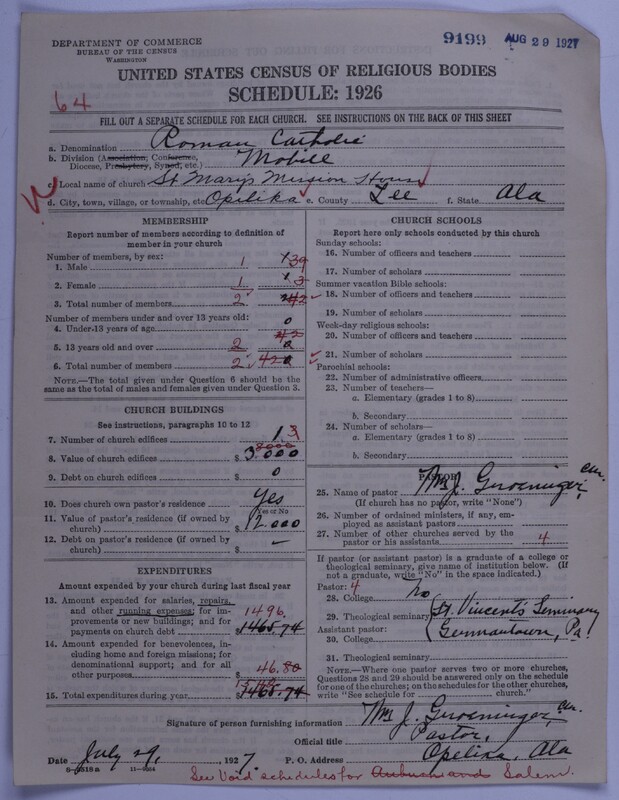 DEPARTMENT OF COMMERCE
BUREAU OF THE CENSUS
WASHINGTON
9199 AUG 29 1927
UNITED STATES CENSUS OF RELIGIOUS BODIES
SCHEDULE: 1926
64
FILL OUT A SEPARATE SCHEDULE FOR EACH CHURCH. SEE INSTRUCTIONS ON THE BACK OF THIS SHEET
a. Denomination Roman Catholic
b. Division (Association, Conference, Diocese, Presbytery, Synod, etc.) Mobile
c. Local name of church St Mary's Mission House
d. City, town, village, or township, etc Opelika e. County Lee f. State Ala
MEMBERSHIP
Report number of members according to definition of
member in your church
Number of members, by sex:
1. Male 1 39
2. Female 1 3
3. Total number of members 2 42
Number of members under and over 13 years old:
4. Under 13 years of age 0
5. 13 years old and over 2 42
6. Total number of members 2 42
NOTE.—The total given under Question 6 should be the
same as the total of males and females given under Question 3.
CHURCH BUILDINGS
See instructions, paragraphs 10 to 12
7. Number of church edifices 1 3
8. Value of church edifices $ 3,000 8000
9. Debt on church edifices $ 0
10. Does church own pastor's residence Yes
Yes or No
11. Value of pastor's residence (if owned by
church) $ 12.000
12. Debt on pastor's residence (if owned by
church) $
EXPENDITURES
Amount expended by your church during last fiscal year
13. Amount expended for salaries, repairs,
and other running expenses; for im-
provements or new buildings; and for
payments on church debt $ 1496. 1465.74
14. Amount expended for benevolences,
including home and foreign missions; for
denominational support; and for all
other purposes $ 46.80
15. Total expenditures during year $ 1465.74
CHURCH SCHOOLS
Report here only schools conducted by this church
Sunday schools:
16. Number of officers and teachers
17. Number of scholars
Summer vacation Bible schools:
18. Number of officers and teachers
19. Number of scholars
Week-day religious schools:
20. Number of officers and teachers
21. Number of scholars
Parochial schools:
22. Number of administrative officers
23. Number of teachers—
a. Elementary (grades 1 to 8)
b. Secondary
24. Number of scholars—
a. Elementary (grades 1 to 8)
b. Secondary
PASTOR
25. Name of pastor Wm J. Gruoninger, C.M.
(If church has no pastor, write "None")
26. Number of ordained ministers, if any, em-
ployed as assistant pastors
27. Number of other churches served by the
pastor or his assistants 4
If pastor (or assistant pastor) is a graduate of a college or
theological seminary, give name of institution below. (If
not a graduate, write "No" in the space indicated.)
Pastor: 4
28. College No
29. Theological seminary St. Vincent's Seminary
Assistant pastor:
30. College Germantown, Pa.
31. Theological seminary
NOTE.—Where one pastor serves two or more churches,
Questions 28 and 29 should be answered only on the schedule
for one of the churches; on the schedules for the other churches,
write "See schedule for church."
Signature of person furnishing information Wm J. Gruoninger, C.M.
Official title Pastor,
Date July 29, 1927. P. O. Address Opelika, Ala
8-5318a 11-9864
See Void schedules for Auburn and Salem.